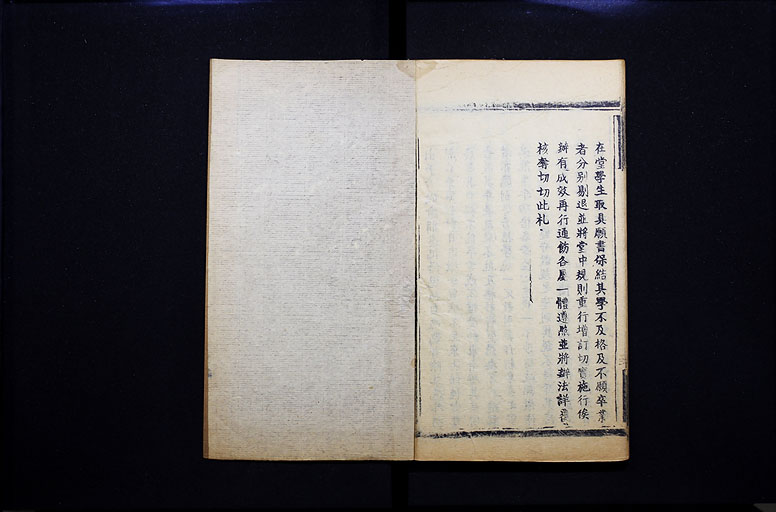 在堂學生取具願書保結其學不及格及不願卒業
者分别剔退並將堂中規則重行增訂切實施行俟
辦有成效再行通飭各屬一體遵照並將辦法詳
核奪切切此札